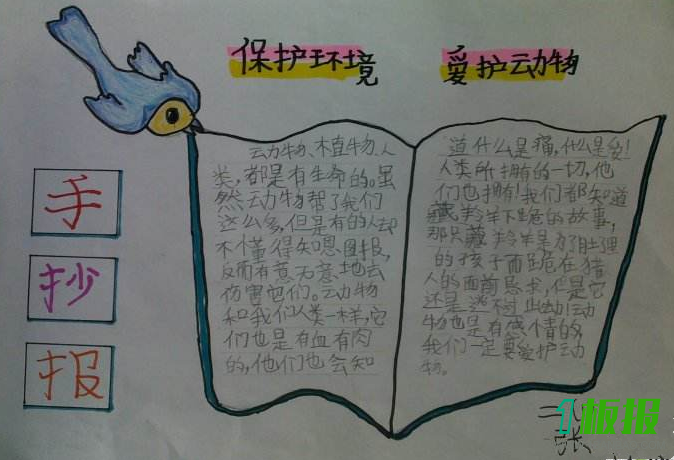 保护环境
爱护动物
手
抄
报
动物、植物、人
类,都是有生命的。虽
然动物帮了我们
这么多,但是有的人却
不懂得知恩图报,
反而有意无意地去
伤害它们。动物
和我们人类一样,它
们也是有血有肉
的,他们也会知
道什么是痛,什么是爱!
人类所拥有的一切,他
们也拥有!我们都知道
藏羚羊下跪的故事,
那只藏羚羊是为了肚里
的孩子而跪在猎
人的面前恳求,但是它
还是逃不过此劫!动
物也是有感情的,
我们一定要爱护动
物。
板报
张